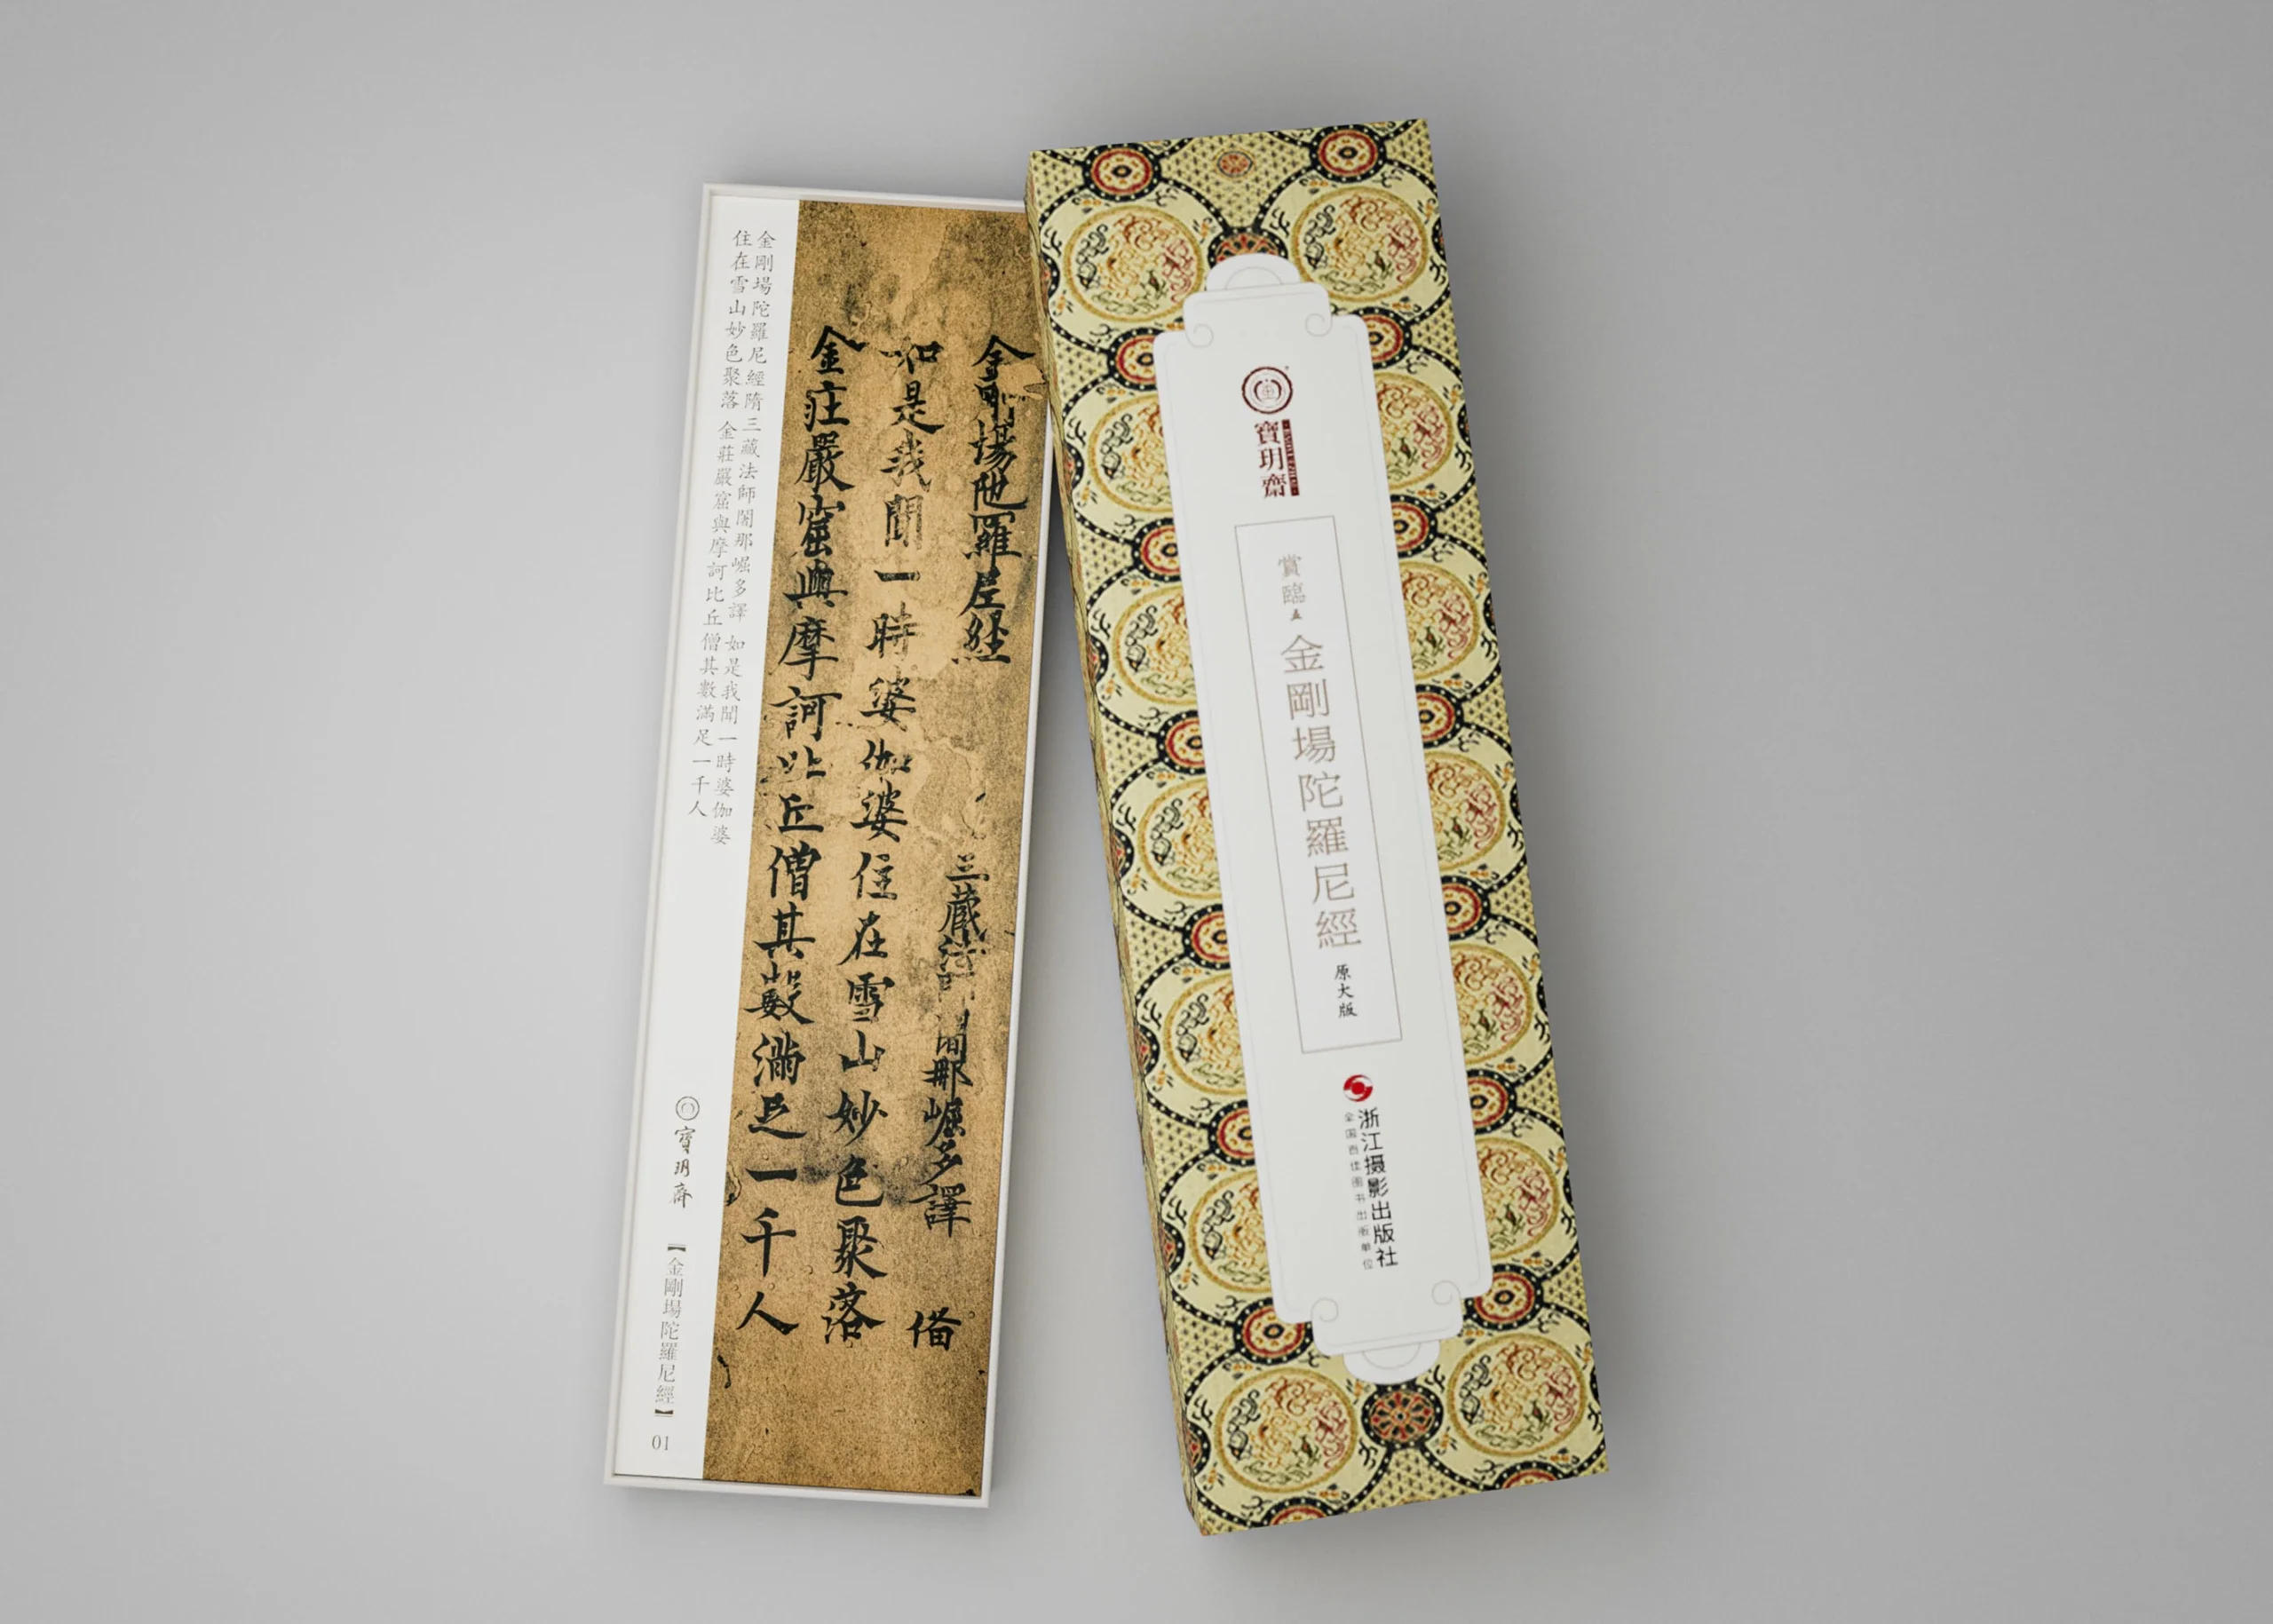 金剛場陀羅尼經
三藏法
那崛多譯
如是我聞一時婆伽婆住在雪山妙色聚落
金莊嚴窟與摩訶比丘僧其數滿足一千人
金剛場陀羅尼經 隋三藏法師闍那崛多譯 如是我聞一時婆伽婆
住在雪山妙色聚落 金莊嚴窟與摩訶比丘僧其數滿足一千人
寶玥齋
【金剛場陀羅尼經】
01
寶玥齋
賞臨
金剛場陀羅尼經
原大版
浙江摄影出版社
全国百佳图书出版单位